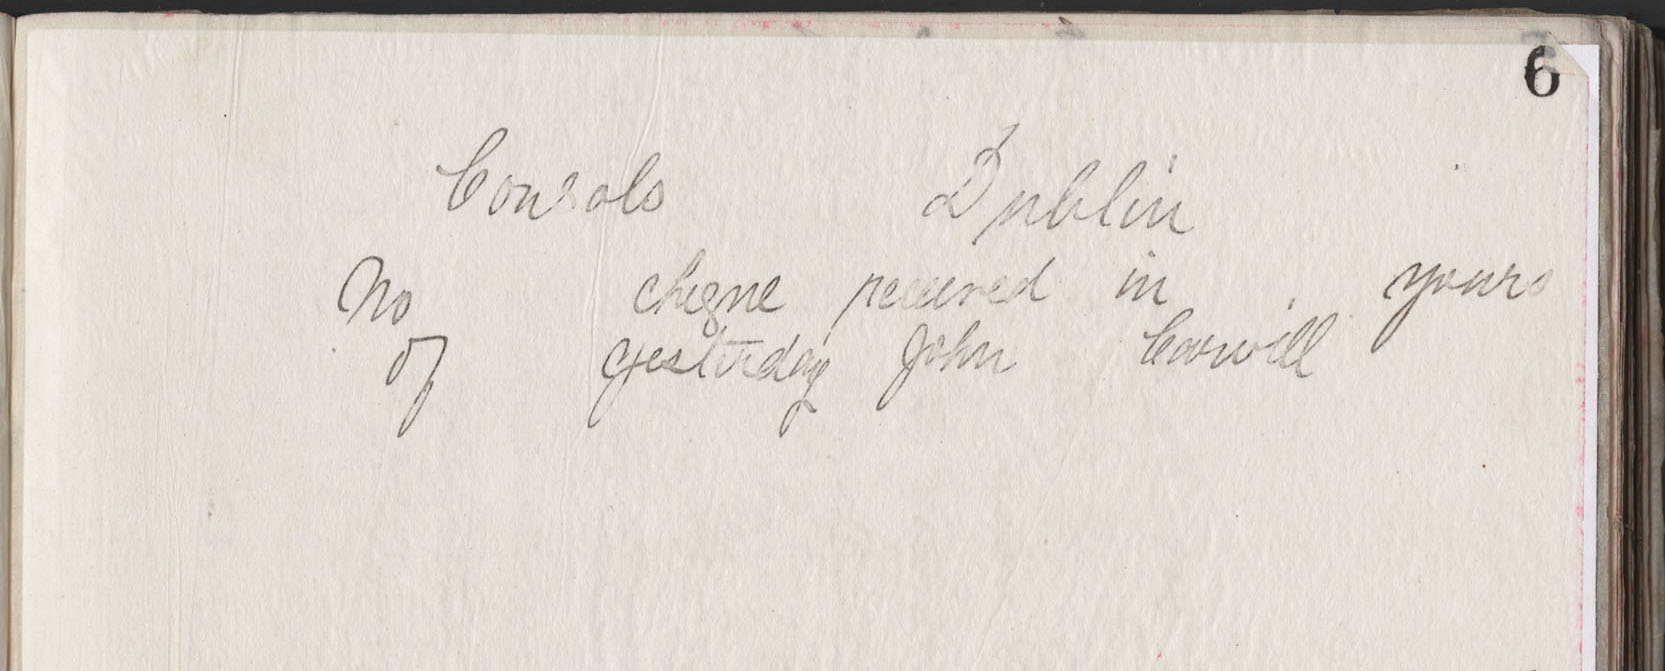 6
Consols Dublin
No cheque received in yours
of yesterday John Carvill